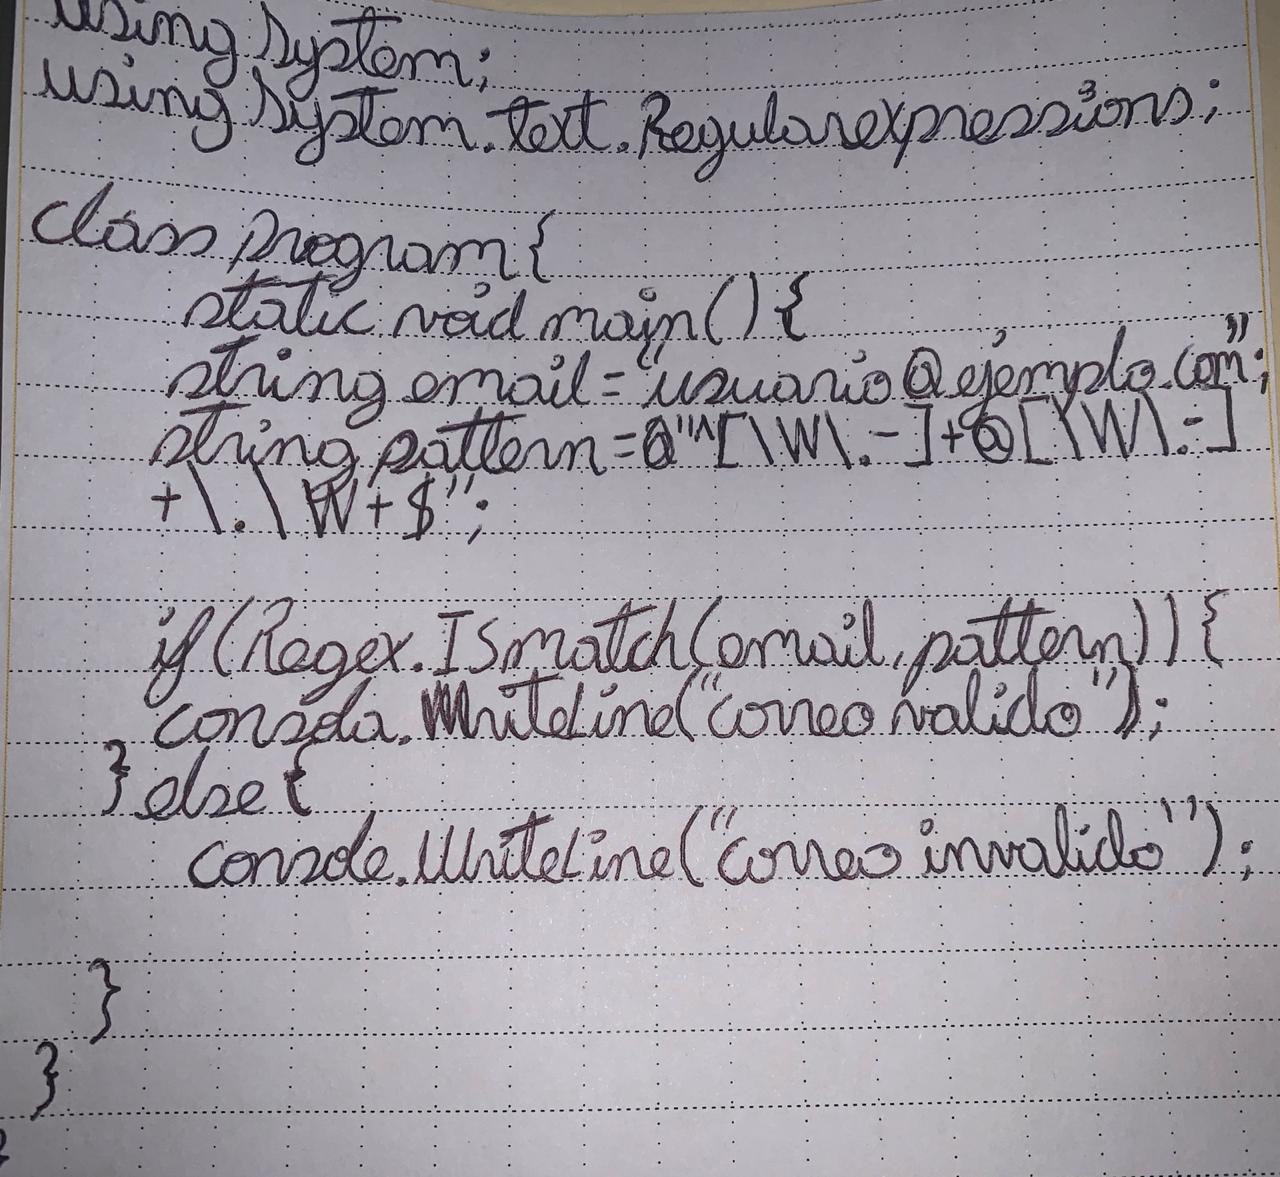 using System;
using System.text.Regularexpressions;
class program{
static void main(){
string email="usuario@ejemplo.com";
string pattern=@"^[\W\.-]+@[\W\.-]
+\.\W+$";
if(Regex.ISmatch(email,pattern)){
console.WriteLine("correo valido");
}else{
console.WriteLine("correo invalido");
}
}
}